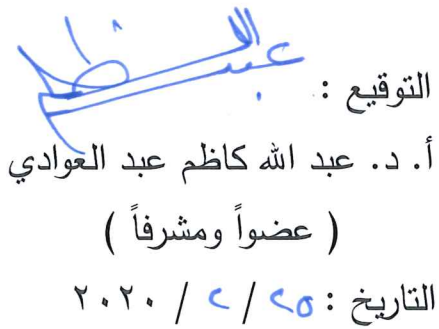 التوقيع :
أ. د. عبد الله كاظم عبد العوادي
( عضواً ومشرفاً )
التاريخ : ٢٥ / ٢ / ٢٠٢٠